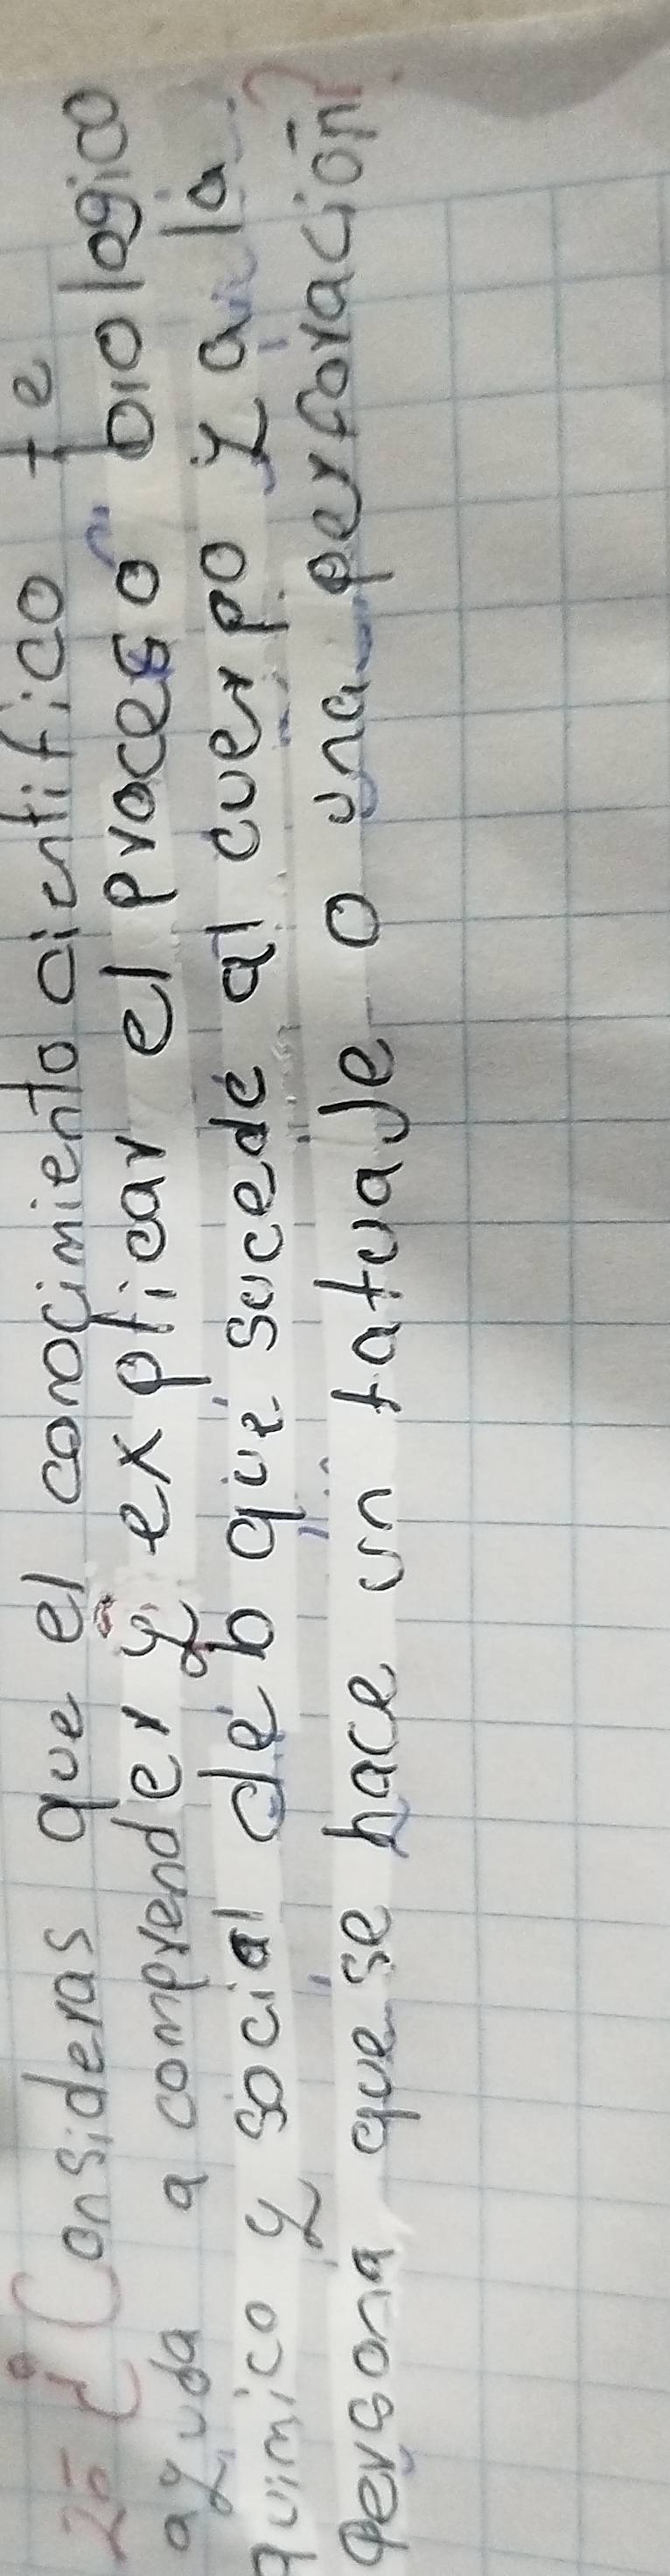 25 ¿Consideras que el conocimiento cientifico te
ayuda a comprender y explicar el proceso biologico
quimico y social deb que sucede al cuerpo y a la
persona que se hace un tatuaje o una perforación?